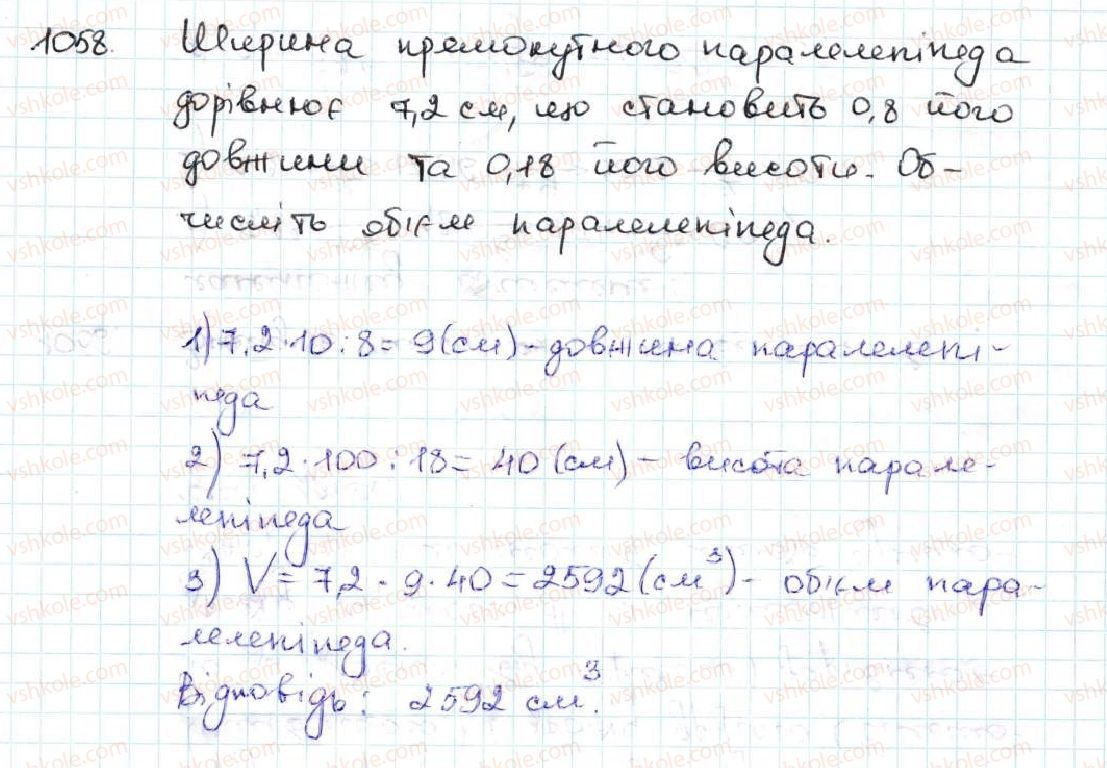 1058. Ширина прямокутного паралелепіпеда
дорівнює 7,2 см, що становить 0,8 його
довжини та 0,18 його висоти. Об-
числіть об'єм паралелепіпеда.
1) 7,2·10:8=9(см)-довжина паралелепі-
педа
2) 7,2·100:18=40(см)-висота парале-
лепіпеда
3) V=7,2·9·40=2592(см³)-об'єм пара-
лелепіпеда.
Відповідь: 2592 см³.